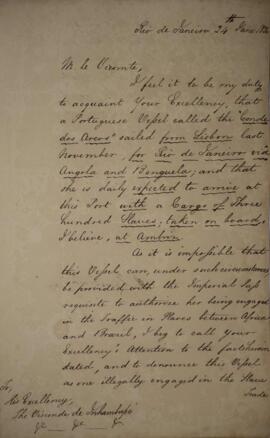 Rio de Janeiro 24th Jany. 182
M. le Vicomte,
I feel it to be my duty
to acquaint Your Excellency, that
a Portuguese Vessel called the "Conde
dos Arcos" sailed from Lisbon last
November, for Rio de Janeiro via
Angola and Benguela; and that
she is daily expected to arrive at
this Port with a Cargo of Three
hundred Slaves, taken on board,
I believe, at Ambriz.
As it is impossible that
this Vessel can, under such circumstances
be provided with the Imperial Pass
requisite to authorise her being engaged
in the Traffic in Slaves between Africa
and Brazil, I beg to call Your
Excellency's Attention to the facts herein
stated, and to denounce this Vessel
as one illegally engaged in the Slave
Trade
To,
His Excellency,
The Viscount de Inhambupe
&c &c &c